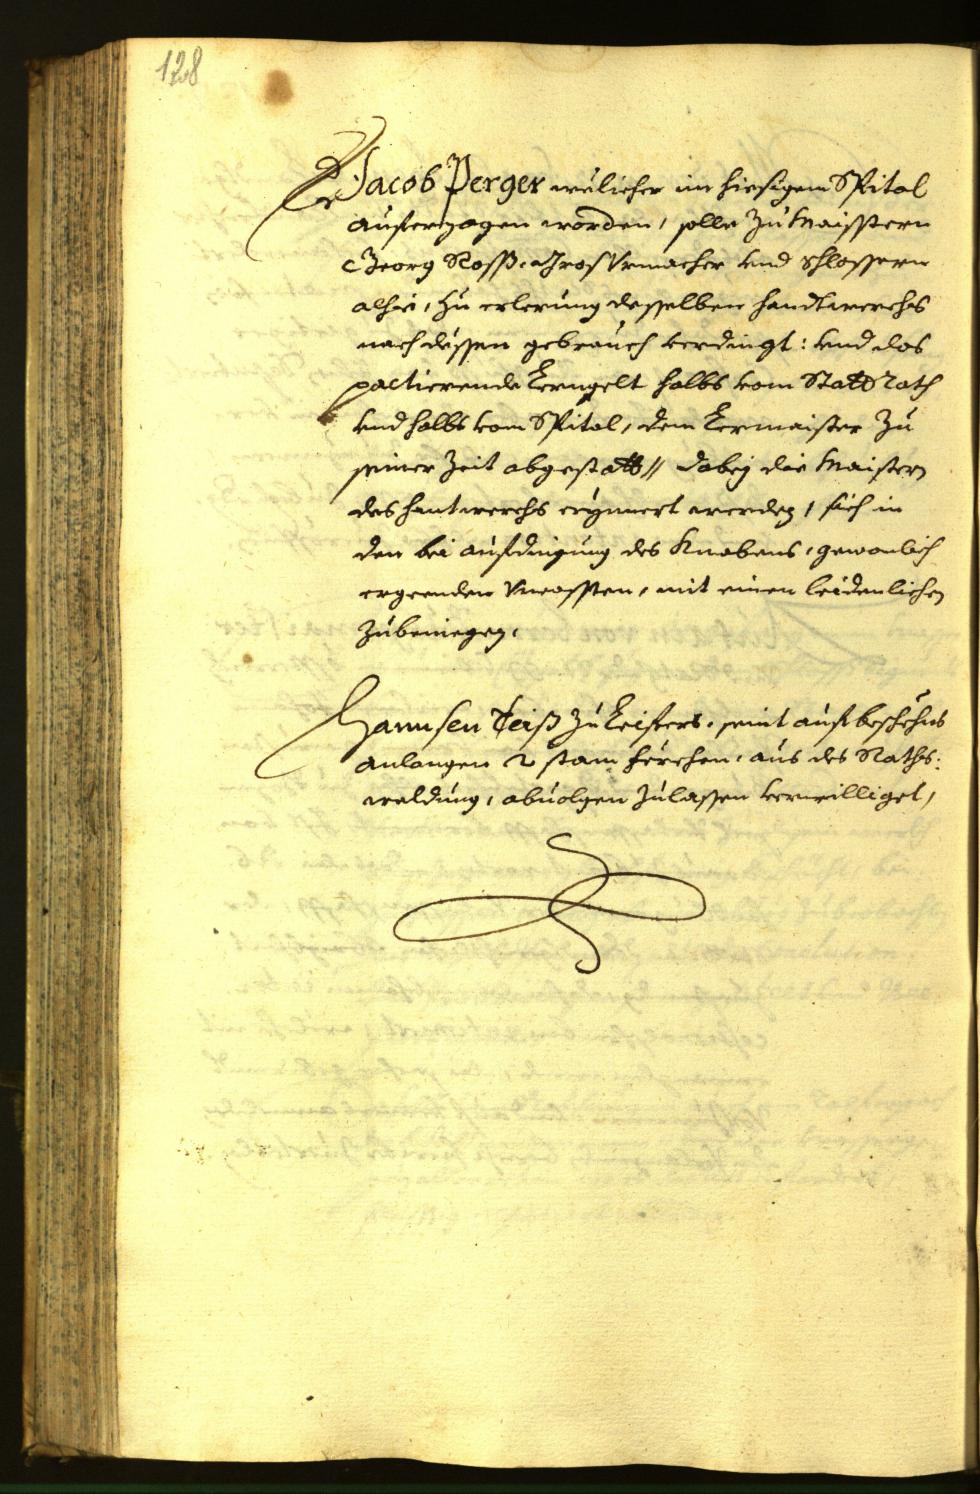 128
Er Jacob Perger welicher im hiesigem Spital
auferzogen worden, solle zu Maisstern
Georg Rosß, Gros Vrmacher vnd Schlossern
alhie, zu erlerung desselben handtwerchs
nach dessen gebrauch verdingt: vnd das
pactierende Lerngelt halbs vom Statt Rath
vnd halbs vom Spital, dem Lermaister zu
seiner Zeit abgestatt // dabey die Maistern
des hantwerchs erynnert werden, sich in
den bei aufdingung des Knabens, gewonlich
ergeenden Vncossten, mit einen leidenlichen
zubeniegen.
Hannsen Teiß zu Leifers, seint auf beschehns
anlangen 2 stam ferchen, aus des Raths:
waldung, abuolgen zulassen verwilliget,